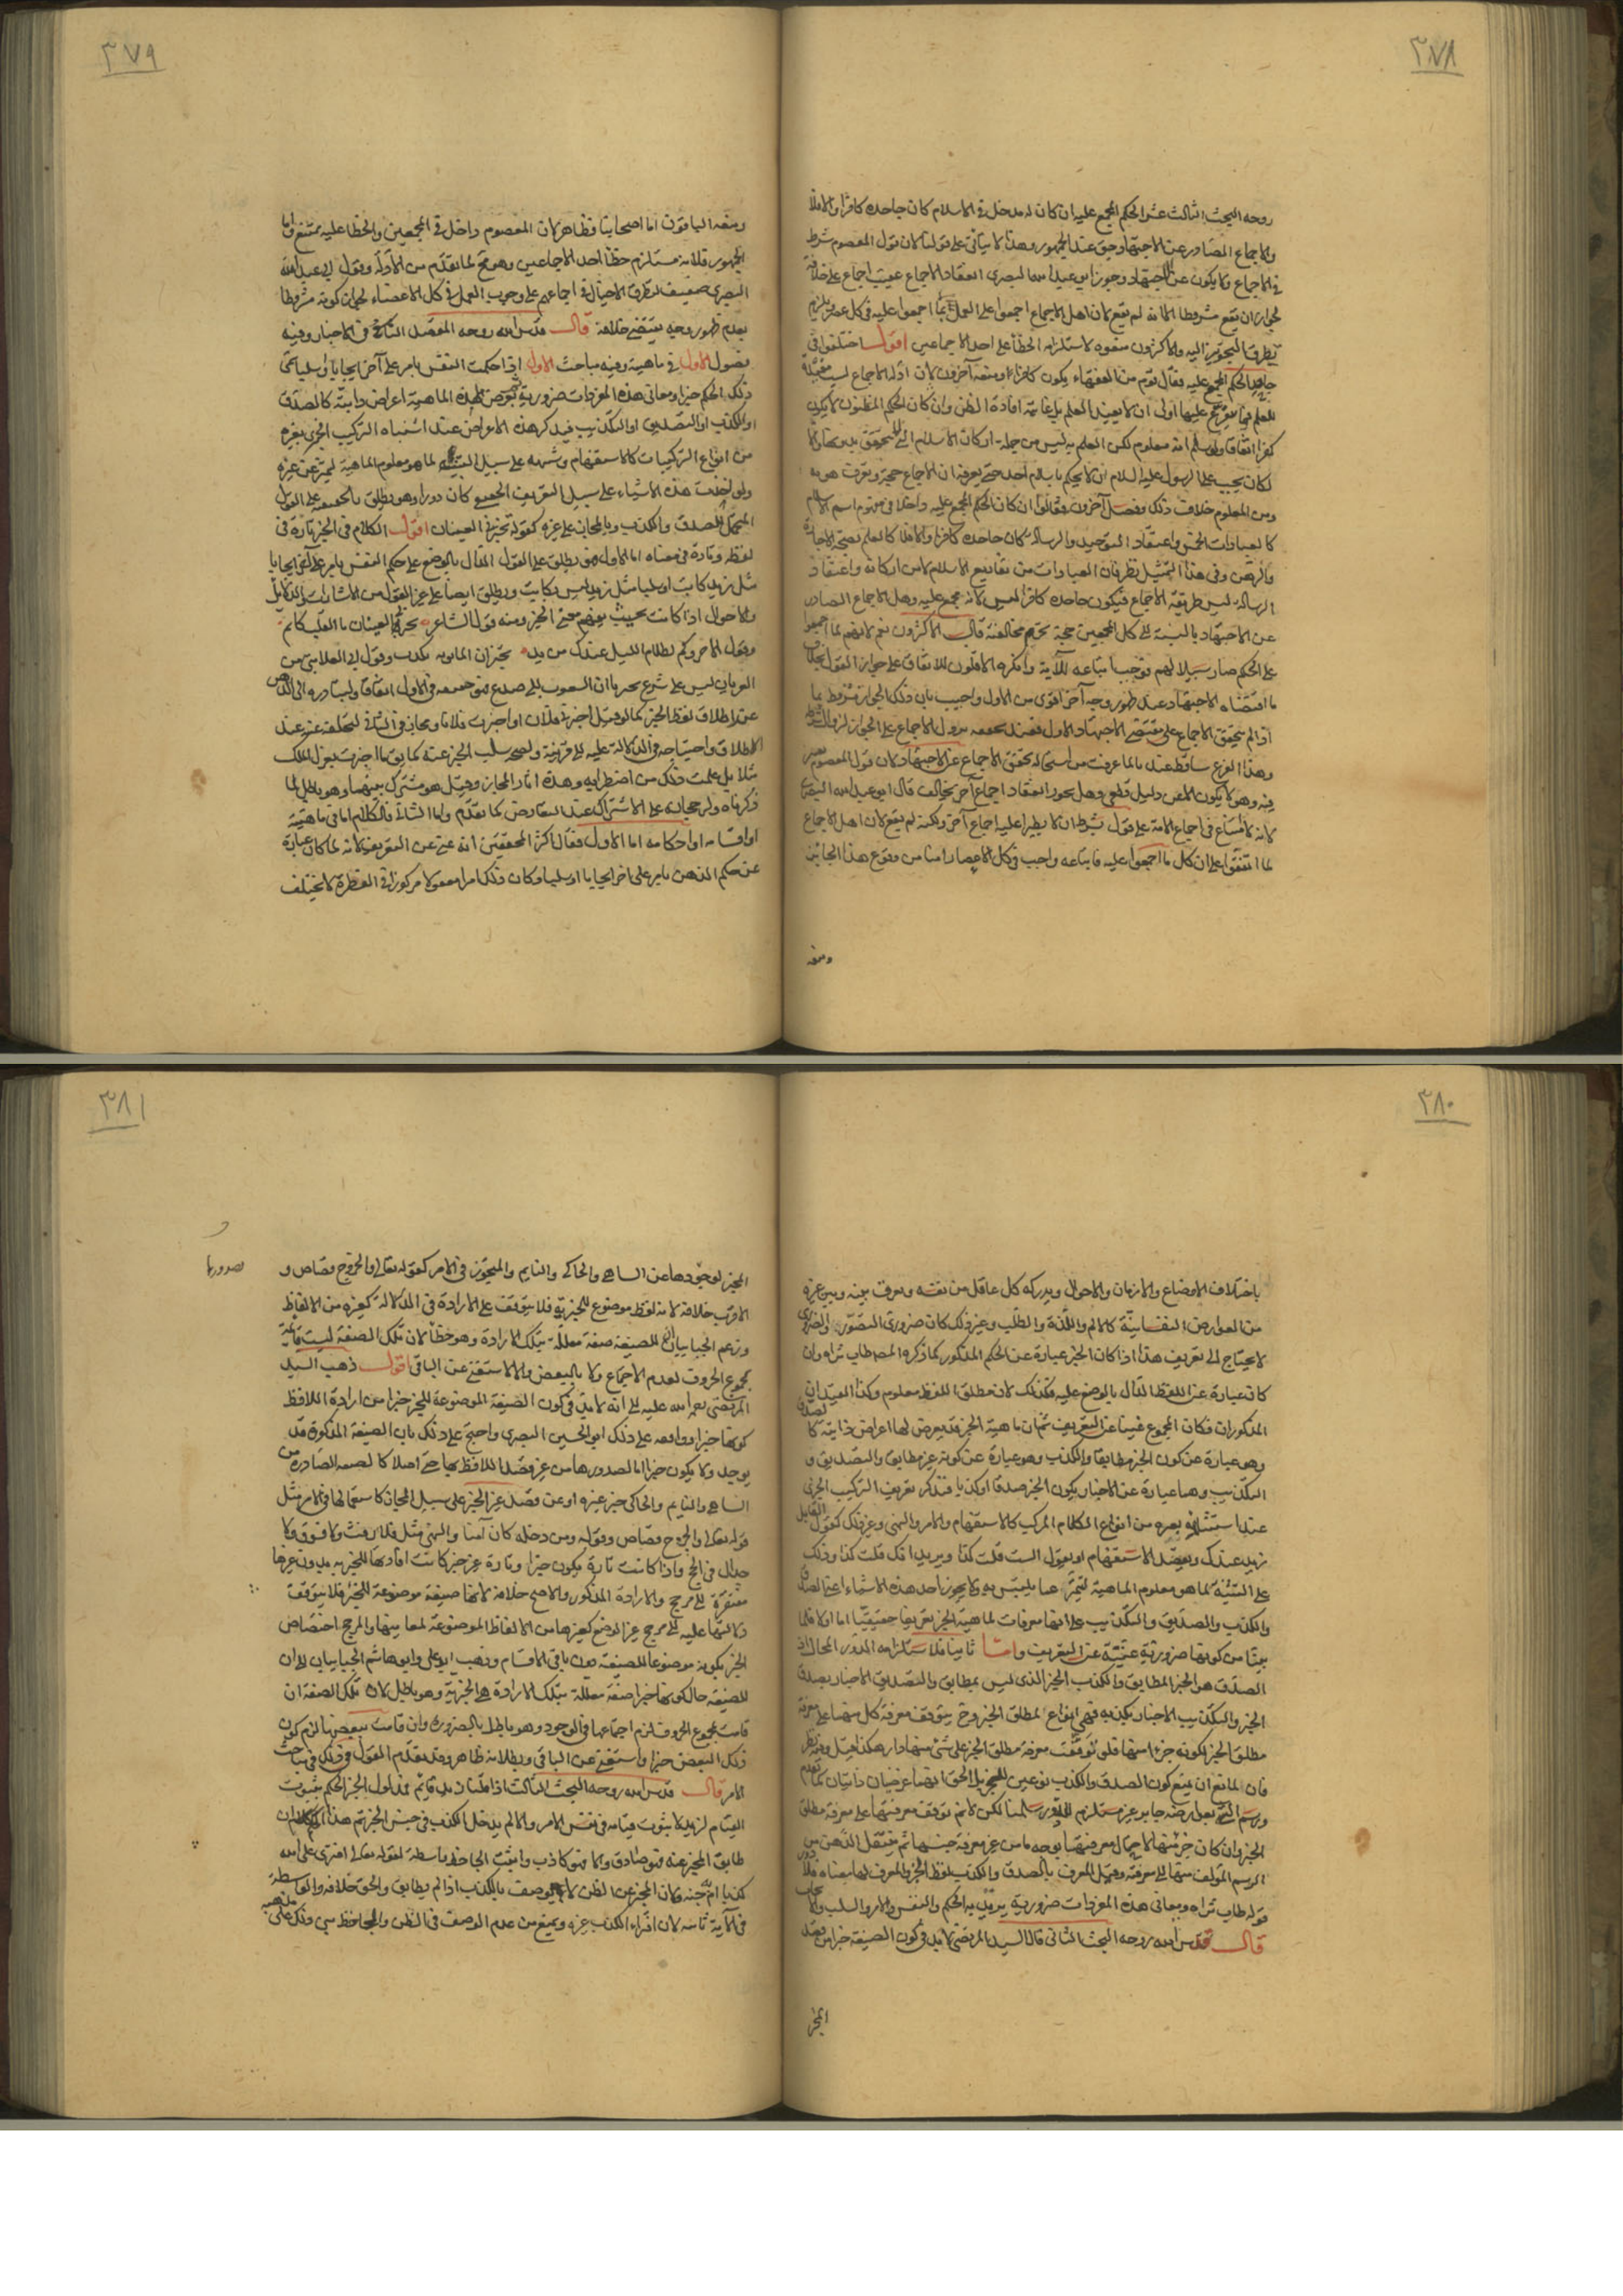 ٣٧٨
روحه البحث الثالث عشر الحكم المجمع عليه ان كان له مدخل في الاسلام كان جاحده كافرا والا فلا
والاجماع الصادر عن الاجتهاد حق عند الجمهور وهذا لا يتاتى على قولنا لان قول المعصوم شرط
في الاجماع ولا يكون عن الاجتهاد وجوز ابو عبد الله البصرى انعقاد الاجماع عقيب اجماع على خلافه
لجواز ان يقع مشروطا الا انه لم يقع لان اهل الاجماع اجمعوا على العمل بما اجمعوا عليه في كل عصر فلم
يتطرق التجويز اليه والاكثرون منعوه لاستلزامه الخطأ على احد الاجماعين اقول اختلفوا في
جاحد الحكم المجمع عليه فقال قوم من الفقهاء يكون كافرا ومنعه آخرون لان ادلة الاجماع ليست مفيدة
للعلم فما تفرع عليها اولى ان لا يفيد العلم بل غايته افادة الظن وان كان الحكم المظنون لا يكون
كفرا اتفاقا ولو سلم انه معلوم لكن العلم به ليس من جملة اركان الاسلام التي لا يتحقق بدونها والا
لكان يجب على الرسول عليه السلام ان لا يحكم باسلام احد حتى يعرفه ان الاجماع حجة ويعرف هو به
ومن المعلوم خلاف ذلك وفصل آخرون فقالوا ان كان الحكم المجمع عليه داخلا في مفهوم اسم الاسلام
كالعبادات الخمس واعتقاد التوحيد والرسالة كان جاحده كافرا والا فلا كالعلم بصحة الاجارة
والرهن وفي هذا التمثيل نظر فان العبادات من توابع الاسلام لا من اركانه واعتقاد
الرسالة ليس طريقه الاجماع فيكون جاحده كافرا ليس لانه مجمع عليه وهل الاجماع الصادر
عن الاجتهاد بالنسبة الى كل المجمعين حجة تحرم مخالفته قال الاكثرون نعم لانهم لما اجمعوا
على الحكم صار سبيلا لهم فوجب اتباعه للآية وانكره الاقلون للاتفاق على جواز القول بخلاف
ما اقتضاه الاجتهاد عند ظهور وجه آخر اقوى من الاول واجيب بان ذلك الجواز مشروط بما
اذا لم يتحقق الاجماع على مقتضى الاجتهاد الاول فعند تحققه يزول الاجماع على الجواز لزوال الشرط
وهذا الفرع ساقط عندنا لما عرفت من استحالة تحقق الاجماع عن الاجتهاد لان قول المعصوم معتبر
فيه وهو لا يكون الا عن دليل قطعي وهل يجوز انعقاد اجماع آخر يخالف قال ابو عبد الله البصري
لانه لا امتناع في اجماع الامة على قول بشرط ان لا يطرأ عليه اجماع آخر ولكنه لم يقع لان اهل الاجماع
لما اتفقوا على ان كل ما اجمعوا عليه فاتباعه واجب في كل الاعصار امنا من وقوع هذا الجائز
ومنعه
٣٧٩
ومنعه الباقون اما اصحابنا فظاهر لان المعصوم داخل في المجمعين والخطا عليه ممتنع واما
الجمهور فلانه مستلزم خطأ احد الاجماعين وهو مح لما تقدم من الادلة وقول ابي عبد الله
البصري ضعيف لتطرق الاحتمال في اجماعهم على وجوب العمل في كل الاعصار لجواز كونه مشروطا
بعدم ظهور وجه يقتضي خلافه قال قدس الله روحه المقصد التاسع في الاخبار وفيه
فصول الاول في ماهيته وفيه مباحث الاول اذا حكمت النفس بامر على آخر ايجابا او سلبا سمي
ذلك الحكم خبرا ومعاني هذه المفردات ضرورية وتعرض لهذه الماهية اعراض ذاتية كالصدق
او الكذب او التصديق او التكذيب فيذكر هذه الاعراض عند اشتباه التركيب الخبري بغيره
من انواع التركيبات كالاستفهام وشبهه على سبيل التنبيه لما هو معلوم الماهية ليميز عن غيره
ولو اخذت هذه الاشياء على سبيل التعريف الحقيقي كان دورا وهو يطلق بالحقيقة على القول
المحتمل للصدق والكذب وبالمجاز على غيره كقوله تخبرني العينان اقول الكلام في الخبر تارة في
لفظه وتارة في معناه اما الاول فهو يطلق على القول الدال بالوضع على حكم النفس بامر على آخر ايجابا
مثل زيد كاتب او سلبا مثل زيد ليس بكاتب ويطلق ايضا على غير القول من الاشارات والدلائل
والاحوال اذا كانت بحيث يفهم معنى الخبر ومنه قول الشاعر تخبرني العينان ما القلب كاتم
وقول الآخر وكم لظلام الليل عندك من يد تخبر ان المانوية تكذب وقول ابي العلا نبي من
الغربان ليس على شرع يخبرنا ان الشعوب الى صدع فهو حقيقة في الاول اتفاقا ولتبادره الى الذهن
عند اطلاق لفظ الخبر كما لو قيل اخبرني فلان او اخبرت فلانا ومجاز في الثاني لتخلفه عنه عند
الاطلاق واحتياجه في الدلالة عليه الى قرينة ولصحة سلب الخبر عنه كما يق ما اخبرت بعزل الملك
مثلا بل علمت ذلك من اضطرابه وهذه امارة المجاز وقيل هو مشترك بينهما وهو باطل لما
ذكرناه ولرجحانه على الاشتراك عند التعارض كما تقدم واما الثاني فالكلام اما في ماهيته
او اقسامه او احكامه اما الاول فقال اكثر المحققين انه غني عن التعريف لانه لما كان عبارة
عن حكم الذهن بامر على آخر ايجابا او سلبا وكان ذلك امرا معقولا مركوزا في الفطرة لا يختلف
٣٨٠
باختلاف الاوضاع والازمان والاحوال ويدركه كل عاقل من نفسه ويعرف بينه وبين غيره
من العوارض النفسانية كالالم واللذة والطلب وغير ذلك كان ضروري التصور والضروري
لا يحتاج الى تعريف هذا اذا كان الخبر عبارة عن الحكم المذكور كما ذكره المص طاب ثراه وان
كان عبارة عن اللفظ الدال بالوضع عليه فكذلك لان مطلق اللفظ معلوم وكذا القيدان
المذكوران فكان المجموع غنيا عن التعريف ثم ان ماهية الخبر قد يعرض لها اعراض ذاتية كالصدق
وهو عبارة عن كون الخبر مطابقا والكذب وهو عبارة عن كونه غير مطابق والتصديق و
التكذيب وهما عبارة عن الاخبار بكون الخبر صدقا او كذبا فتذكر تعريف التركيب الخبري
عند اشتباهه بغيره من انواع الكلام المركب كالاستفهام والامر والنهي وغير ذلك كقول القايل
زيد عندك ويقصد الاستفهام او يقول الست قلت كذا ويريد انك قلت كذا وذلك
على التنبيه لما هو معلوم الماهية لتميز عما يلتبس به ولا يجوز اخذ هذه الاشياء اعني الصدق
والكذب والتصديق والتكذيب على انها معرفات لماهية الخبر تعريفا حقيقيا اما اولا فلما
بينا من كونها ضرورية غنية عن التعريف واما ثانيا فلاستلزامه الدور المحال اذ
الصدق هو الخبر المطابق والكذب الخبر الذي ليس بمطابق والتصديق الاخبار بصدق
الخبر والتكذيب الاخبار بكذبه فهي انواع لمطلق الخبر وح يتوقف معرفة كل منها على معرفة
مطلق الخبر لكونه جزءا منها فلو توقفت معرفة مطلق الخبر على شئ منها دار هكذا قيل وفيه نظر
فان المانع ان يمنع كون الصدق والكذب نوعين للخبر بل الحق انهما عرضيان ذاتيان كما تقدم
ورسم الشئ بعوارضه جايز غير مستلزم للدور سلمنا لكن لا نم توقف معرفتها على معرفة مطلق
الخبر وان كان جزءا منها لاحتمال معرفتها بوجه ما من غير معرفة جنسها ثم ينتقل الذهن من
الرسم المؤلف منها الى معرفته وقيل المعرف بالصدق والكذب لفظ الخبر والمعرف لهما معناه فلا دور
قوله طاب ثراه ومعاني هذه المفردات ضرورية يريد به الحكم والنفس والامر والسلب والايجاب
قال قدس الله روحه البحث الثاني قال السيد المرتضى لا بد في كون الصيغة خبرا من قصد
المخبر
٣٨١
المخبر لوجودها عن الساهي والحاكي والنايم والمتجوز في الامر كقوله تعالى والجروح قصاص و
صدورها
الاقرب خلافه لانه لفظ موضوع للخبرية فلا يتوقف على الارادة في الدلالة كغيره من الالفاظ
وزعم الجبائيان ان للصيغة صفة معللة بتلك الارادة وهو خطأ لان تلك الصفة ليست قائمة
بمجموع الحروف لعدم الاجتماع ولا بالبعض والا لاستغنى عن الباقي اقول ذهب السيد
المرتضى رحمه الله عليه الى انه لا بد في كون الصيغة الموضوعة للخبر خبرا من ارادة اللافظ
كونها خبرا ووافقه على ذلك ابو الحسين البصري واحتج على ذلك بان الصيغة المذكورة قد
يوجد ولا يكون خبرا اما لصدورها من غير قصد اللافظ بها حتى اصلا كالصيغة الصادرة من
الساهي والنايم والحاكي خبر غيره او عن قصد غير الخبر على سبيل المجاز كاستعمالها في الامر مثل
قوله تعالى والجروح قصاص وقوله ومن دخله كان آمنا والنهي مثل فلا رفث ولا فسوق ولا
جدال في الحج واذا كانت تارة يكون خبرا وتارة غير خبر كانت افادتها للخبرية بدون غيرها
مفتقرة الى مرجح والارادة المذكور والاصح خلافه لانها صيغة موضوعة للخبر فلا يتوقف
دلالتها عليه الى مرجح غير الوضع كغيرها من الالفاظ الموضوعة لمعانيها والمرجح اختصاص
الخبر بكونه موضوعا للصيغة دون باقي الاقسام وذهب ابو علي وابو هاشم الجبائيان الى ان
للصيغة حال كونها خبرا صفة معللة بتلك الارادة هي الخبرية وهو باطل لان تلك الصفة ان
قامت بمجموع الحروف لزم اجتماعها في الوجود وهو باطل بالضرورة وان قامت ببعضها لزم كون
ذلك البعض خبرا واستغنى عن الباقي وبطلانه ظاهر وقد تقدم القول في ذلك في مباحث
الامر قال قدس الله روحه البحث الثالث اذا قلنا زيد قائم فمدلول الخبر الحكم بثبوت
القيام لزيد لا ثبوت قيامه في نفس الامر والا لم يدخل الكذب في جنس الخبر ثم هذا الحكم ان
طابق المخبر عنه فهو صادق والا فهو كاذب واثبت الجاحظ واسطة لقوله تعالى افترى على الله
كذبا ام به جنة ولان المخبر عن الظن لا يوصف بالكذب اذا لم يطابق والحق خلافه والواسطة
في الآية ثابتة لان افتراء الكذب غيره ويمنع من عدم الوصف في الظن والجاحظ بنى ذلك على مذهبه